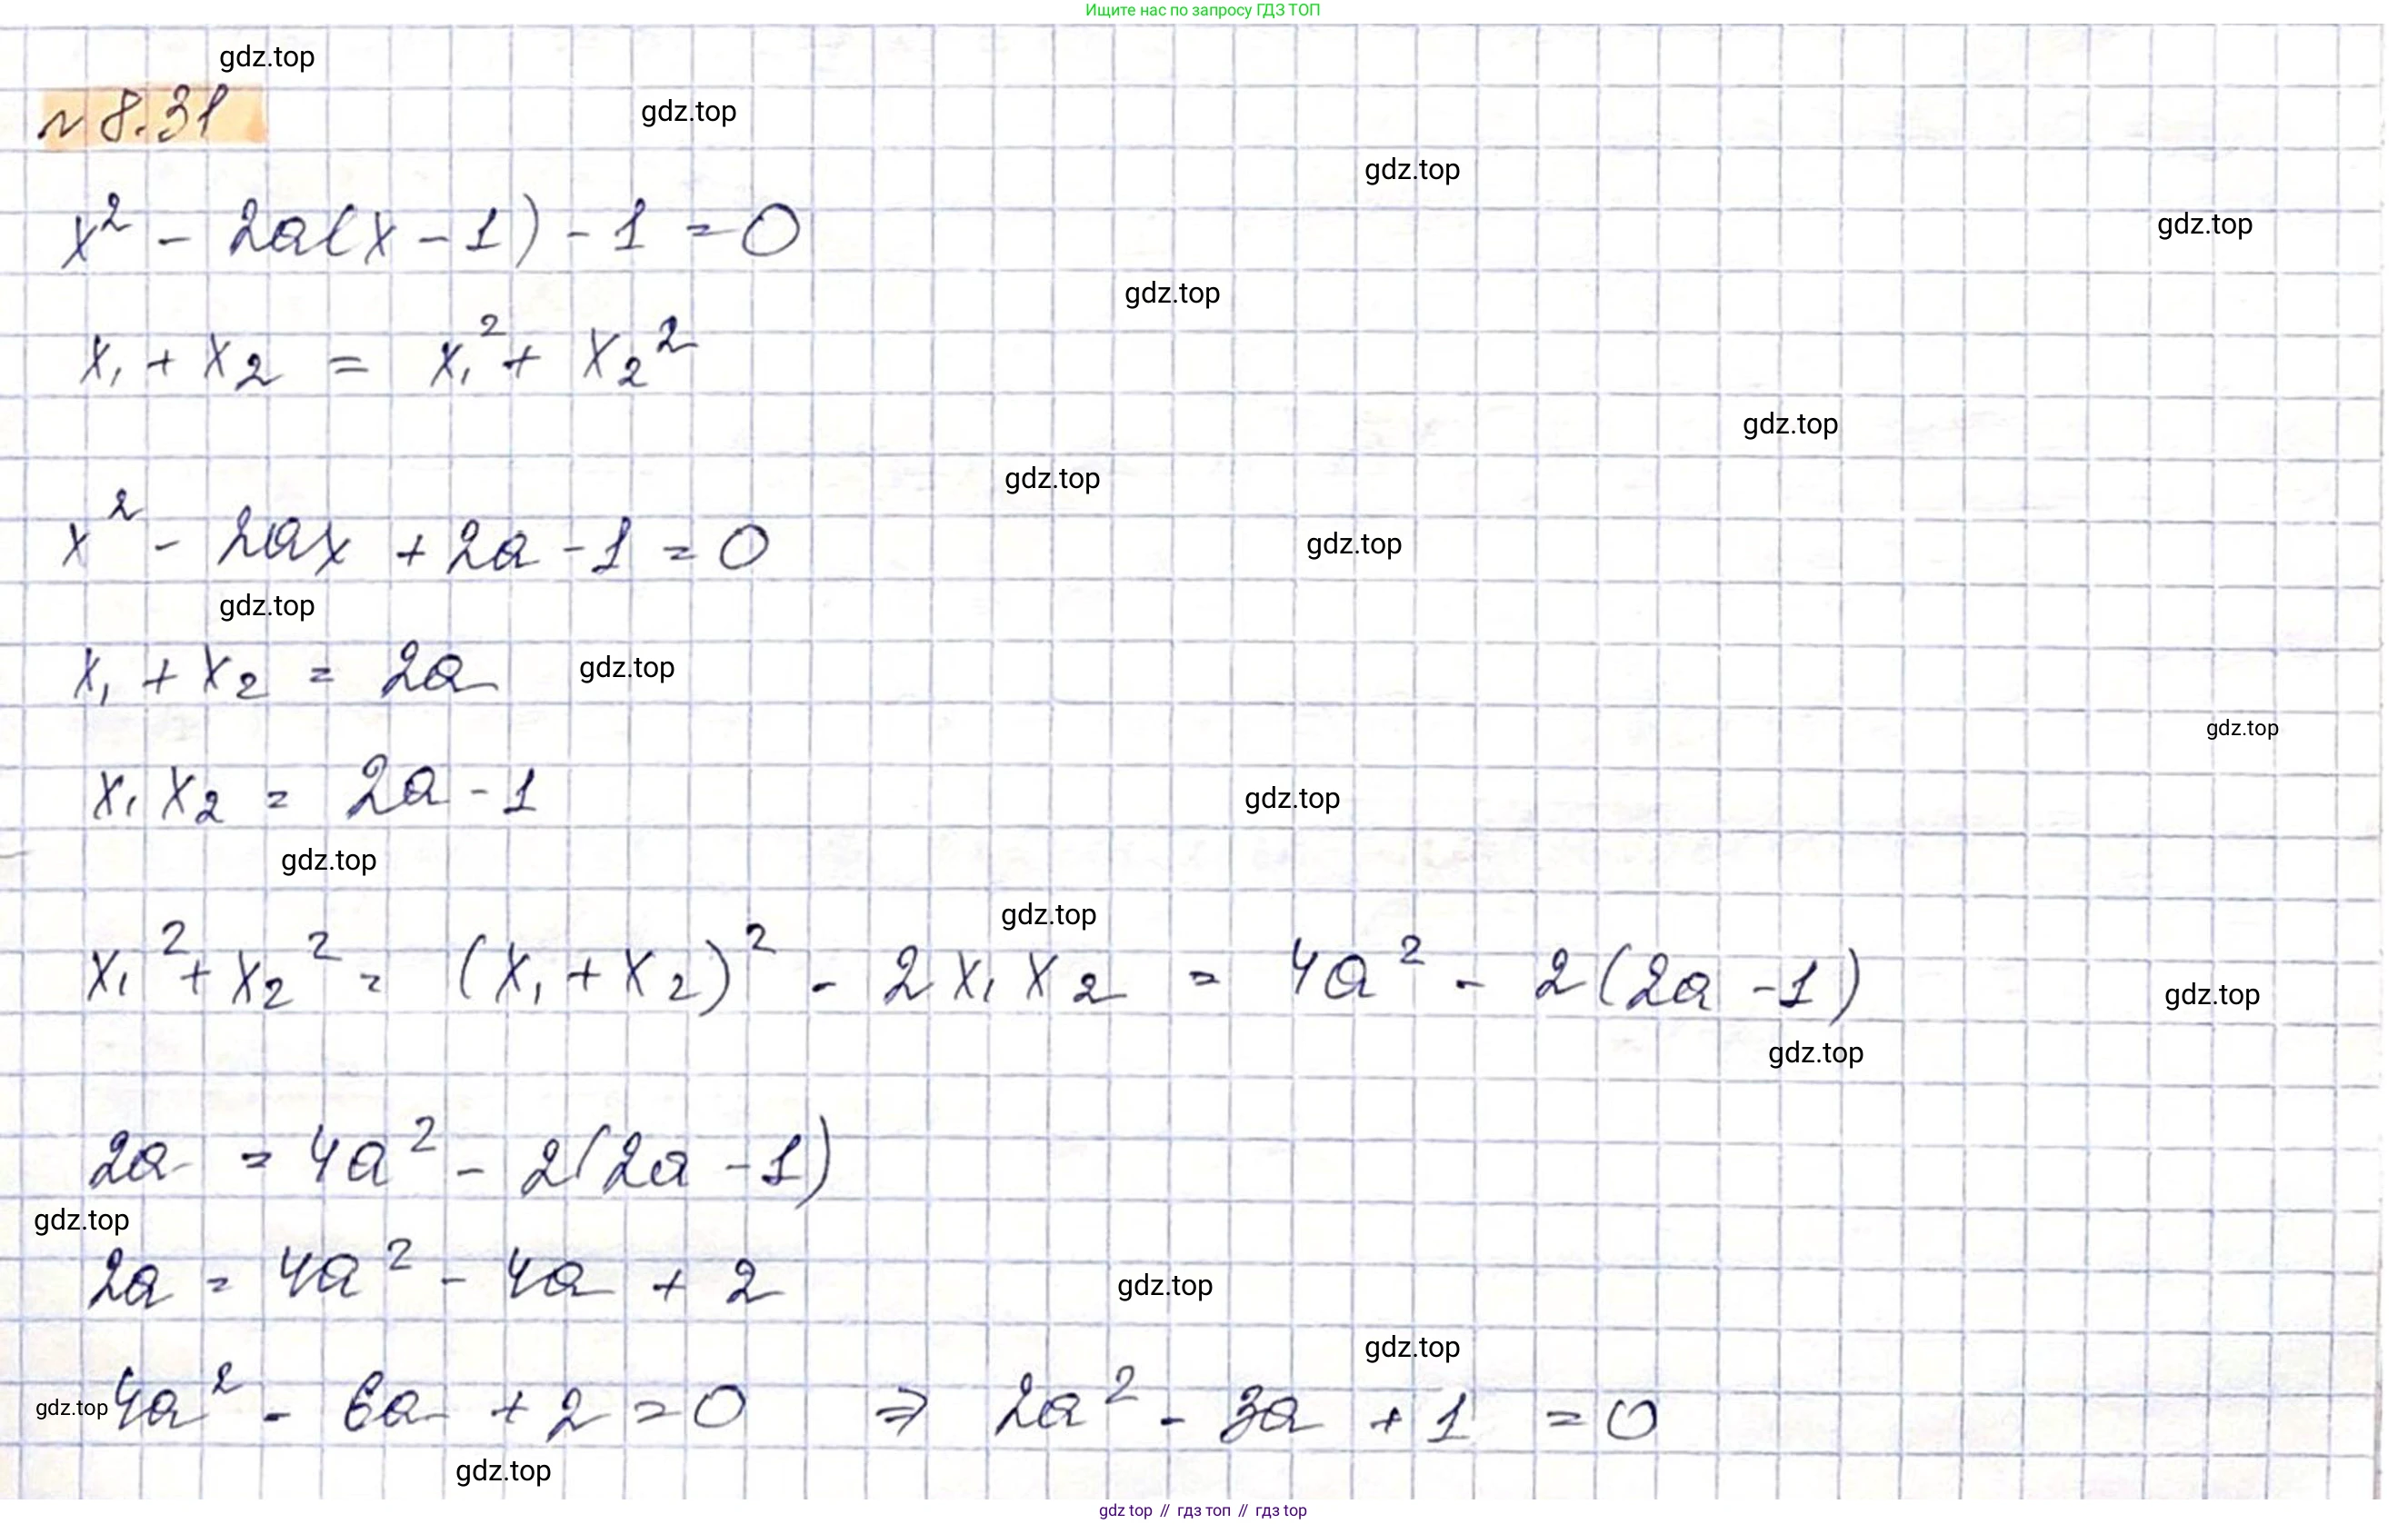 Ищите нас по запросу ГДЗ ТОП
gdz.top
№ 8.31
gdz.top
gdz.top
x² - 2a(x - 1) - 1 = 0
gdz.top
gdz.top
x₁ + x₂ = x₁² + x₂²
gdz.top
gdz.top
x² - 2ax + 2a - 1 = 0
gdz.top
gdz.top
x₁ + x₂ = 2a
gdz.top
gdz.top
x₁ x₂ = 2a - 1
gdz.top
gdz.top
gdz.top
x₁² + x₂² = (x₁ + x₂)² - 2 x₁ x₂ = 4a² - 2(2a - 1)
gdz.top
gdz.top
2a = 4a² - 2(2a - 1)
gdz.top
2a = 4a² - 4a + 2
gdz.top
gdz.top
gdz.top
4a² - 6a + 2 = 0 ⇒ 2a² - 3a + 1 = 0
gdz.top
gdz top // гдз топ // гдз top